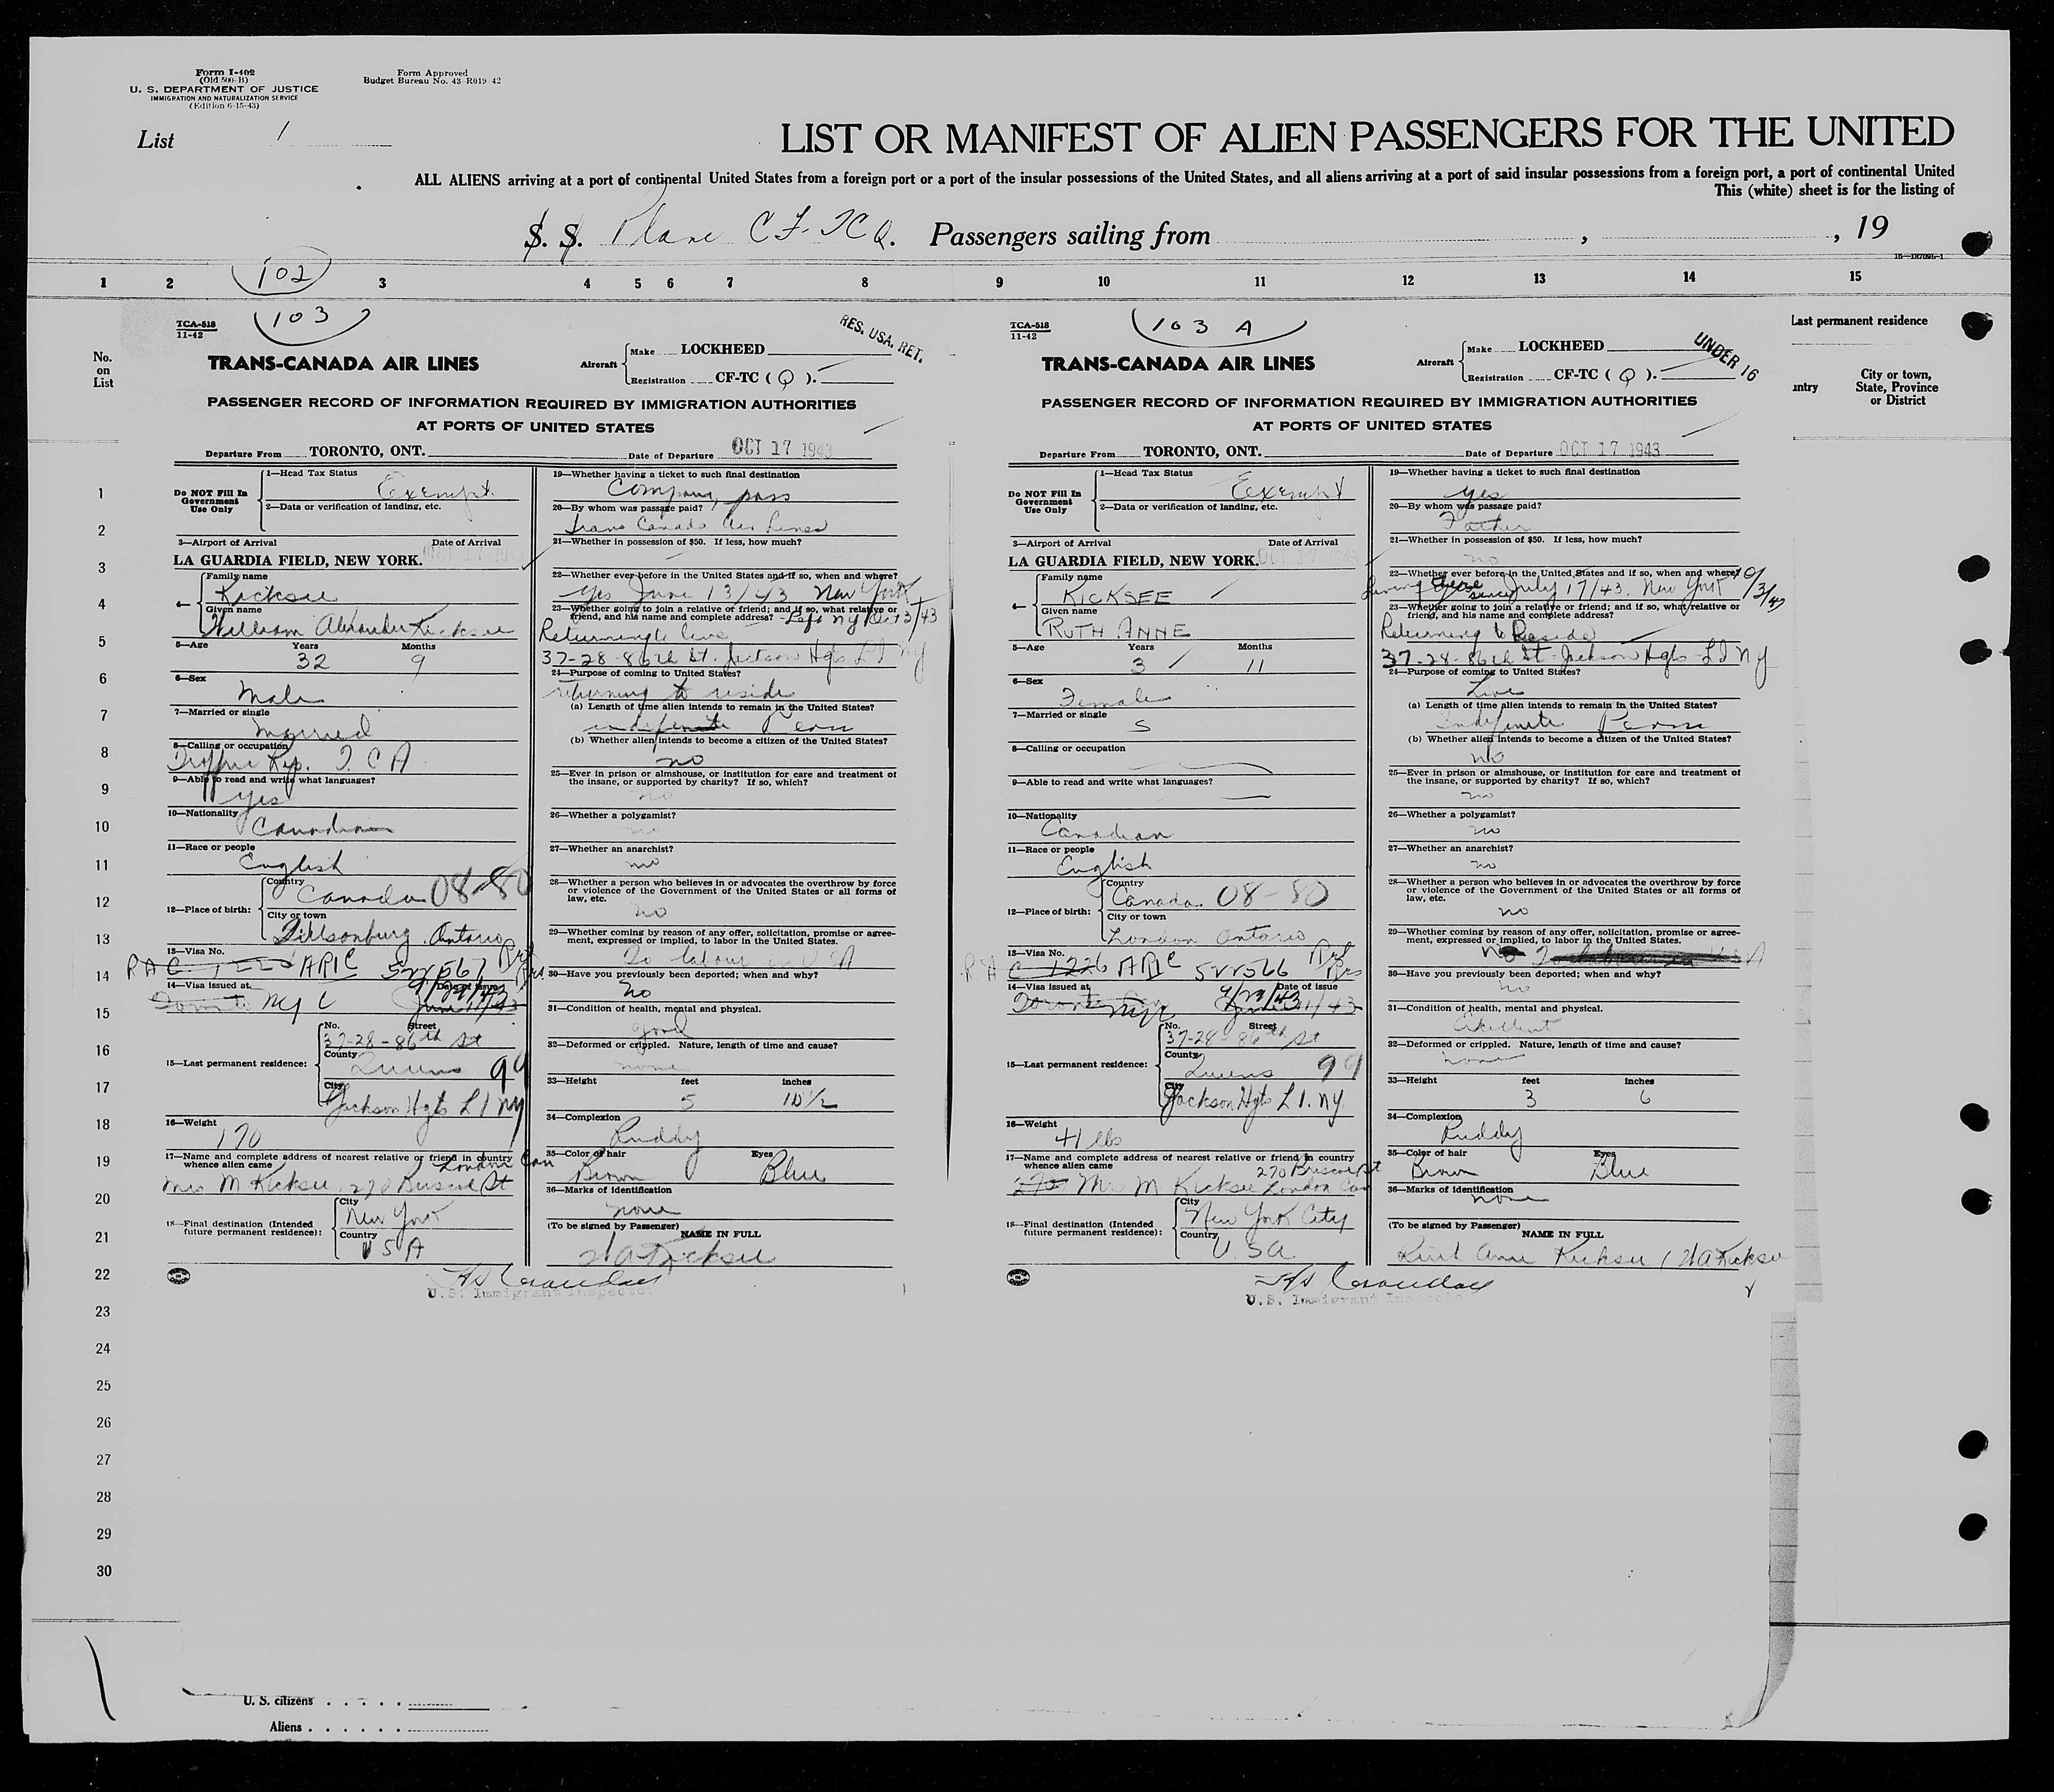 Form I-402
(Old 500-B)
U. S. DEPARTMENT OF JUSTICE
IMMIGRATION AND NATURALIZATION SERVICE
(Edition 6-15-43)
Form Approved
Budget Bureau No. 43-R019-42
List 1
LIST OR MANIFEST OF ALIEN PASSENGERS FOR THE UNITED
ALL ALIENS arriving at a port of continental United States from a foreign port or a port of the insular possessions of the United States, and all aliens arriving at a port of said insular possessions from a foreign port, a port of continental United
This (white) sheet is for the listing of
S. S. Plane CF-TCQ. Passengers sailing from , , 19
102
1 2 3 4 5 6 7 8 9 10 11 12 13 14 15
No.
on
List
1
2
3
4
5
6
7
8
9
10
11
12
13
14
15
16
17
18
19
20
21
22
23
24
25
26
27
28
29
30
TCA-518
11-42
103
RES. USA. RET.
TRANS-CANADA AIR LINES
Aircraft
Make LOCKHEED
Registration CF-TC ( Q ).
PASSENGER RECORD OF INFORMATION REQUIRED BY IMMIGRATION AUTHORITIES
AT PORTS OF UNITED STATES
Departure From TORONTO, ONT. Date of Departure OCT 17 1943
Do NOT Fill In
Government
Use Only
1—Head Tax Status
Exempt
2—Data or verification of landing, etc.
3—Airport of Arrival Date of Arrival
LA GUARDIA FIELD, NEW YORK.
4—
Family name
Kicksee
Given name
William Alexander Kicksee
5—Age Years Months
32 9
6—Sex
Male
7—Married or single
Married
8—Calling or occupation
Traffic Rep. T C A
9—Able to read and write what languages?
yes
10—Nationality
Canadian
11—Race or people
English
12—Place of birth:
Country
Canada 08-80
City or town
Tillsonburg Ontario
13—Visa No.
ARIC 522567
14—Visa issued at Date of issue
Toronto NYC 9/29/43 June 11/43
15—Last permanent residence:
No. Street
37-28-86th St
County
Queens 99
City
Jackson Hgts L I NY
16—Weight
170
17—Name and complete address of nearest relative or friend in country
whence alien came London Can
Mrs M Kicksee 270 Briscoe St
18—Final destination (Intended
future permanent residence):
City
New York
Country
U S A
19—Whether having a ticket to such final destination
Company pass
20—By whom was passage paid?
Trans Canada Air Lines
21—Whether in possession of $50. If less, how much?
22—Whether ever before in the United States and if so, when and where?
Yes June 13/43 New York
23—Whether going to join a relative or friend; and if so, what relative or
friend, and his name and complete address? Left NY Oct 3/43
Returning to live
37-28-86th St. Jackson Hgts L I NY
24—Purpose of coming to United States?
returning to reside
(a) Length of time alien intends to remain in the United States?
indefinite Perm
(b) Whether alien intends to become a citizen of the United States?
no
25—Ever in prison or almshouse, or institution for care and treatment of
the insane, or supported by charity? If so, which?
no
26—Whether a polygamist?
no
27—Whether an anarchist?
no
28—Whether a person who believes in or advocates the overthrow by force
or violence of the Government of the United States or all forms of
law, etc.
no
29—Whether coming by reason of any offer, solicitation, promise or agree-
ment, expressed or implied, to labor in the United States.
To labour in USA
30—Have you previously been deported; when and why?
no
31—Condition of health, mental and physical.
good
32—Deformed or crippled. Nature, length of time and cause?
none
33—Height feet inches
5 10½
34—Complexion
Ruddy
35—Color of hair Eyes
Brown Blue
36—Marks of identification
none
(To be signed by Passenger)
NAME IN FULL
W A Kicksee
U.S. Immigrant Inspector
TCA-518
11-42
103 A
UNDER 16
TRANS-CANADA AIR LINES
Aircraft
Make LOCKHEED
Registration CF-TC ( Q ).
PASSENGER RECORD OF INFORMATION REQUIRED BY IMMIGRATION AUTHORITIES
AT PORTS OF UNITED STATES
Departure From TORONTO, ONT. Date of Departure OCT 17 1943
Do NOT Fill In
Government
Use Only
1—Head Tax Status
Exempt
2—Data or verification of landing, etc.
3—Airport of Arrival Date of Arrival
LA GUARDIA FIELD, NEW YORK. OCT 17 1943
4—
Family name
KICKSEE
Given name
RUTH ANNE
5—Age Years Months
3 11
6—Sex
Female
7—Married or single
S
8—Calling or occupation
9—Able to read and write what languages?
10—Nationality
Canadian
11—Race or people
English
12—Place of birth:
Country
Canada. 08-80
City or town
London Ontario
13—Visa No.
C 1226 ARIC 522566
14—Visa issued at Date of issue
Toronto NYC 9/29/43
15—Last permanent residence:
No. Street
37-28 86th St
County
Queens 99
City
Jackson Hgts L I. NY.
16—Weight
41 lbs
17—Name and complete address of nearest relative or friend in country
whence alien came 270 Briscoe St
Mrs M Kicksee London Can
18—Final destination (Intended
future permanent residence):
City
New York City
Country
U. S A
19—Whether having a ticket to such final destination
yes
20—By whom was passage paid?
Father
21—Whether in possession of $50. If less, how much?
no
22—Whether ever before in the United States and if so, when and where?
since July 17/43. New York
23—Whether going to join a relative or friend; and if so, what relative or
friend, and his name and complete address?
Returning to Reside
37-28-86th St Jackson Hgts L I NY
24—Purpose of coming to United States?
Live
(a) Length of time alien intends to remain in the United States?
Indefinite Perm
(b) Whether alien intends to become a citizen of the United States?
no
25—Ever in prison or almshouse, or institution for care and treatment of
the insane, or supported by charity? If so, which?
no
26—Whether a polygamist?
no
27—Whether an anarchist?
no
28—Whether a person who believes in or advocates the overthrow by force
or violence of the Government of the United States or all forms of
law, etc.
no
29—Whether coming by reason of any offer, solicitation, promise or agree-
ment, expressed or implied, to labor in the United States.
No
30—Have you previously been deported; when and why?
no
31—Condition of health, mental and physical.
Excellent
32—Deformed or crippled. Nature, length of time and cause?
none
33—Height feet inches
3 6
34—Complexion
Ruddy
35—Color of hair Eyes
Brown Blue
36—Marks of identification
none
(To be signed by Passenger)
NAME IN FULL
Ruth Anne Kicksee / W A Kicksee
U.S. Immigrant Inspector
Last permanent residence
untry
City or town,
State, Province
or District
U. S. citizens
Aliens